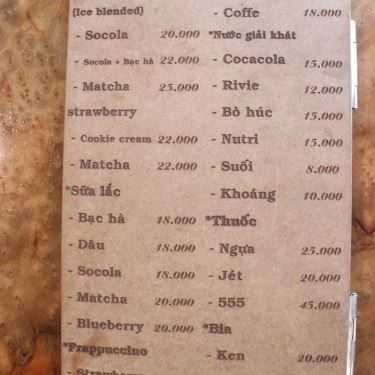 (Ice blended)
- Socola 20.000
- Socola + Bạc hà 22.000
- Matcha 25.000
strawberry
- Cookie cream 22.000
- Matcha 22.000
*Sữa lắc
- Bạc hà 18.000
- Dâu 18.000
- Socola 18.000
- Matcha 20.000
- Blueberry 20.000
*Frappuccino
- Strawberry
- Coffe 18.000
*Nước giải khát
- Cocacola 15.000
- Rivie 12.000
- Bò húc 15.000
- Nutri 15.000
- Suối 8.000
- Khoáng 10.000
*Thuốc
- Ngựa 25.000
- Jét 20.000
- 555 45.000
*Bia
- Ken 20.000